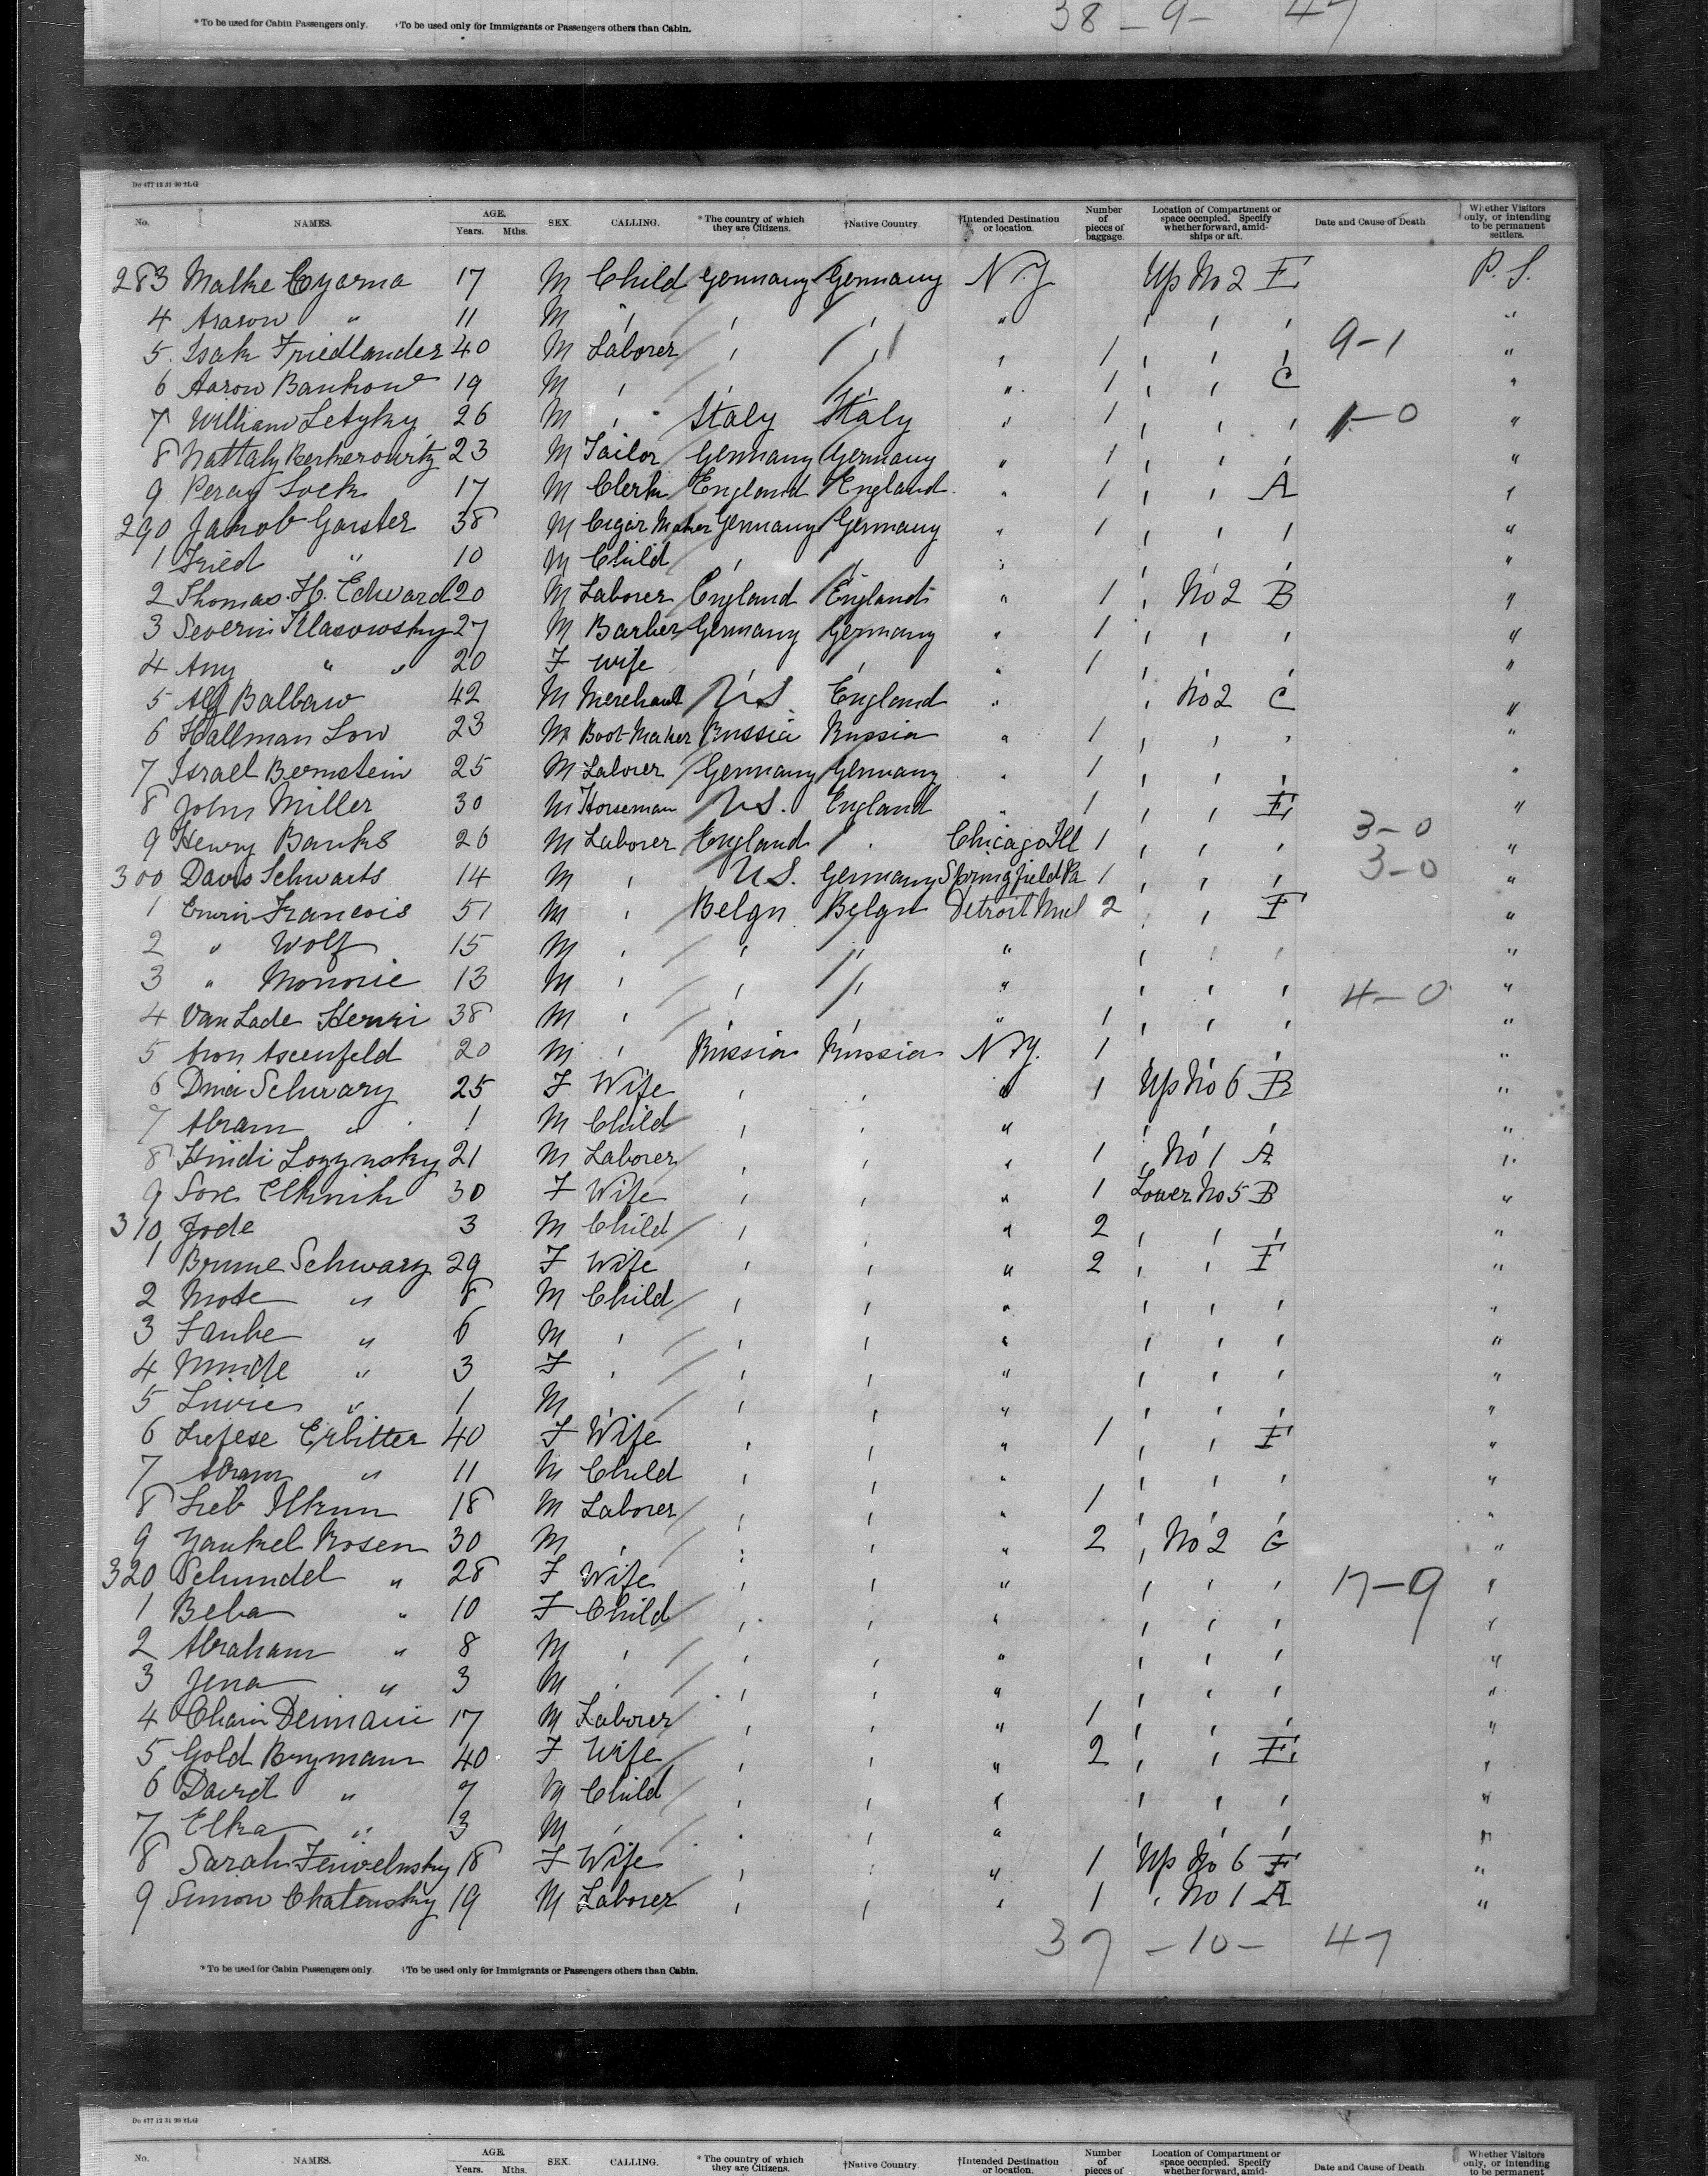 * To be used for Cabin Passengers only. †To be used only for Immigrants or Passengers others than Cabin. 38 - 9 - 47
Do 477 12 31 90 TLG
No. NAMES. AGE. Years. Mths. SEX. CALLING. * The country of which they are Citizens. †Native Country. †Intended Destination or location. Number of pieces of baggage. Location of Compartment or space occupied. Specify whether forward, amid-ships or aft. Date and Cause of Death. Whether Visitors only, or intending to be permanent settlers.
283 Malke Czarna 17 M Child Germany Germany N.Y Up No 2 E P. S.
4 Aason " 11 M " ' ' " ' ' ' "
5 Isak Friedlander 40 M Laborer ' ' ' 1 ' ' ' 9-1 "
6 Aaron Bankow 19 M ' ' ' " 1 ' ' C "
7 William Letyky 26 M ' Italy Italy " 1 ' ' ' 1-0 "
8 Nattaly Berkerowitz 23 M Tailor Germany Germany " 1 ' ' ' "
9 Percy Lock 17 M Clerk England England " 1 ' ' A "
290 Jakob Garster 38 M Cigar Maker Germany Germany " 1 ' ' ' "
1 Fried " 10 M Child ' ' " ' ' ' "
2 Thomas H. Edward 20 M Laborer England England " 1 ' No 2 B "
3 Severin Klasowsky 27 M Barber Germany Germany " 1 ' ' ' "
4 Any " " 20 F Wife ' ' " 1 ' ' ' "
5 Alf Balbaw 42 M Merchant U.S. England " ' No 2 C "
6 Hallman Low 23 M Boot-Maker Russia Russia " 1 ' ' ' "
7 Israel Bernstein 25 M Laborer Germany Germany " 1 ' ' ' "
8 John Miller 30 M Horseman U.S. England " 1 ' ' E "
9 Henry Banks 26 M Laborer England ' Chicago Ill 1 ' ' ' 3-0 "
300 Davis Schwarts 14 M ' U.S. Germany Springfield Pa 1 ' ' ' 3-0 "
1 Francois 51 M ' Belgn Belgn Detroit 2 ' ' F "
2 " Wolf 15 M ' ' " " ' ' ' "
3 " Monorie 13 M ' ' ' " ' ' ' "
4 Van Lade Henri 38 M ' ' ' " 1 ' ' ' 4-0 "
5 Aron Ascenfeld 20 M ' Russia Russia N.Y. 1 ' ' ' "
6 Schwarz 25 F Wife ' ' " 1 Up No 6 B "
7 Abram " 1 M Child ' ' " ' ' ' "
8 Hindi Lozznsky 21 M Laborer ' ' ' 1 ' No 1 A "
9 Sore Elknik 30 F Wife ' ' " 1 Lower No 5 B "
310 Jode 3 M Child ' ' " 2 ' ' ' "
1 Brume Schwarz 29 F Wife ' ' " 2 ' ' F "
2 Mote " 8 M Child ' ' " ' ' ' "
3 Fanke " 6 M ' ' ' " ' ' ' "
4 " 3 F ' ' ' " ' ' ' "
5 " 1 M ' ' ' " ' ' ' "
6 Erbitter 40 F Wife ' ' " 1 ' ' F "
7 Abram " 11 M Child ' ' " ' ' ' "
8 Lieb Elkun 18 M Laborer ' ' " 1 ' ' ' "
9 Yankel Rosen 30 M ' ' ' " 2 ' No 2 G "
320 Schundel " 28 F Wife ' ' " ' ' ' 17-9 "
1 Beba " 10 F Child ' ' " ' ' ' "
2 Abraham " 8 M ' ' ' " ' ' ' "
3 Jena " 3 M ' ' ' " ' ' ' "
4 Chaim 17 M Laborer ' ' " 1 ' ' ' "
5 Gold Brymann 40 F Wife ' ' " 2 ' ' E "
6 David " 7 M Child ' ' " ' ' ' "
7 Elka " 3 M ' ' ' " ' ' ' "
8 Sarah 18 F Wife ' ' " 1 Up No 6 F "
9 Simon Chatensky 19 M Laborer ' ' ' 1 ' No 1 A "
37 - 10 - 47
* To be used for Cabin Passengers only. †To be used only for Immigrants or Passengers others than Cabin.
Do 477 12 31 90 TLG
No. NAMES. AGE. Years. Mths. SEX. CALLING. * The country of which they are Citizens. †Native Country. †Intended Destination or location. Number of pieces of Location of Compartment or space occupied. Specify whether forward, amid- Date and Cause of Death. Whether Visitors only, or intending to be permanent